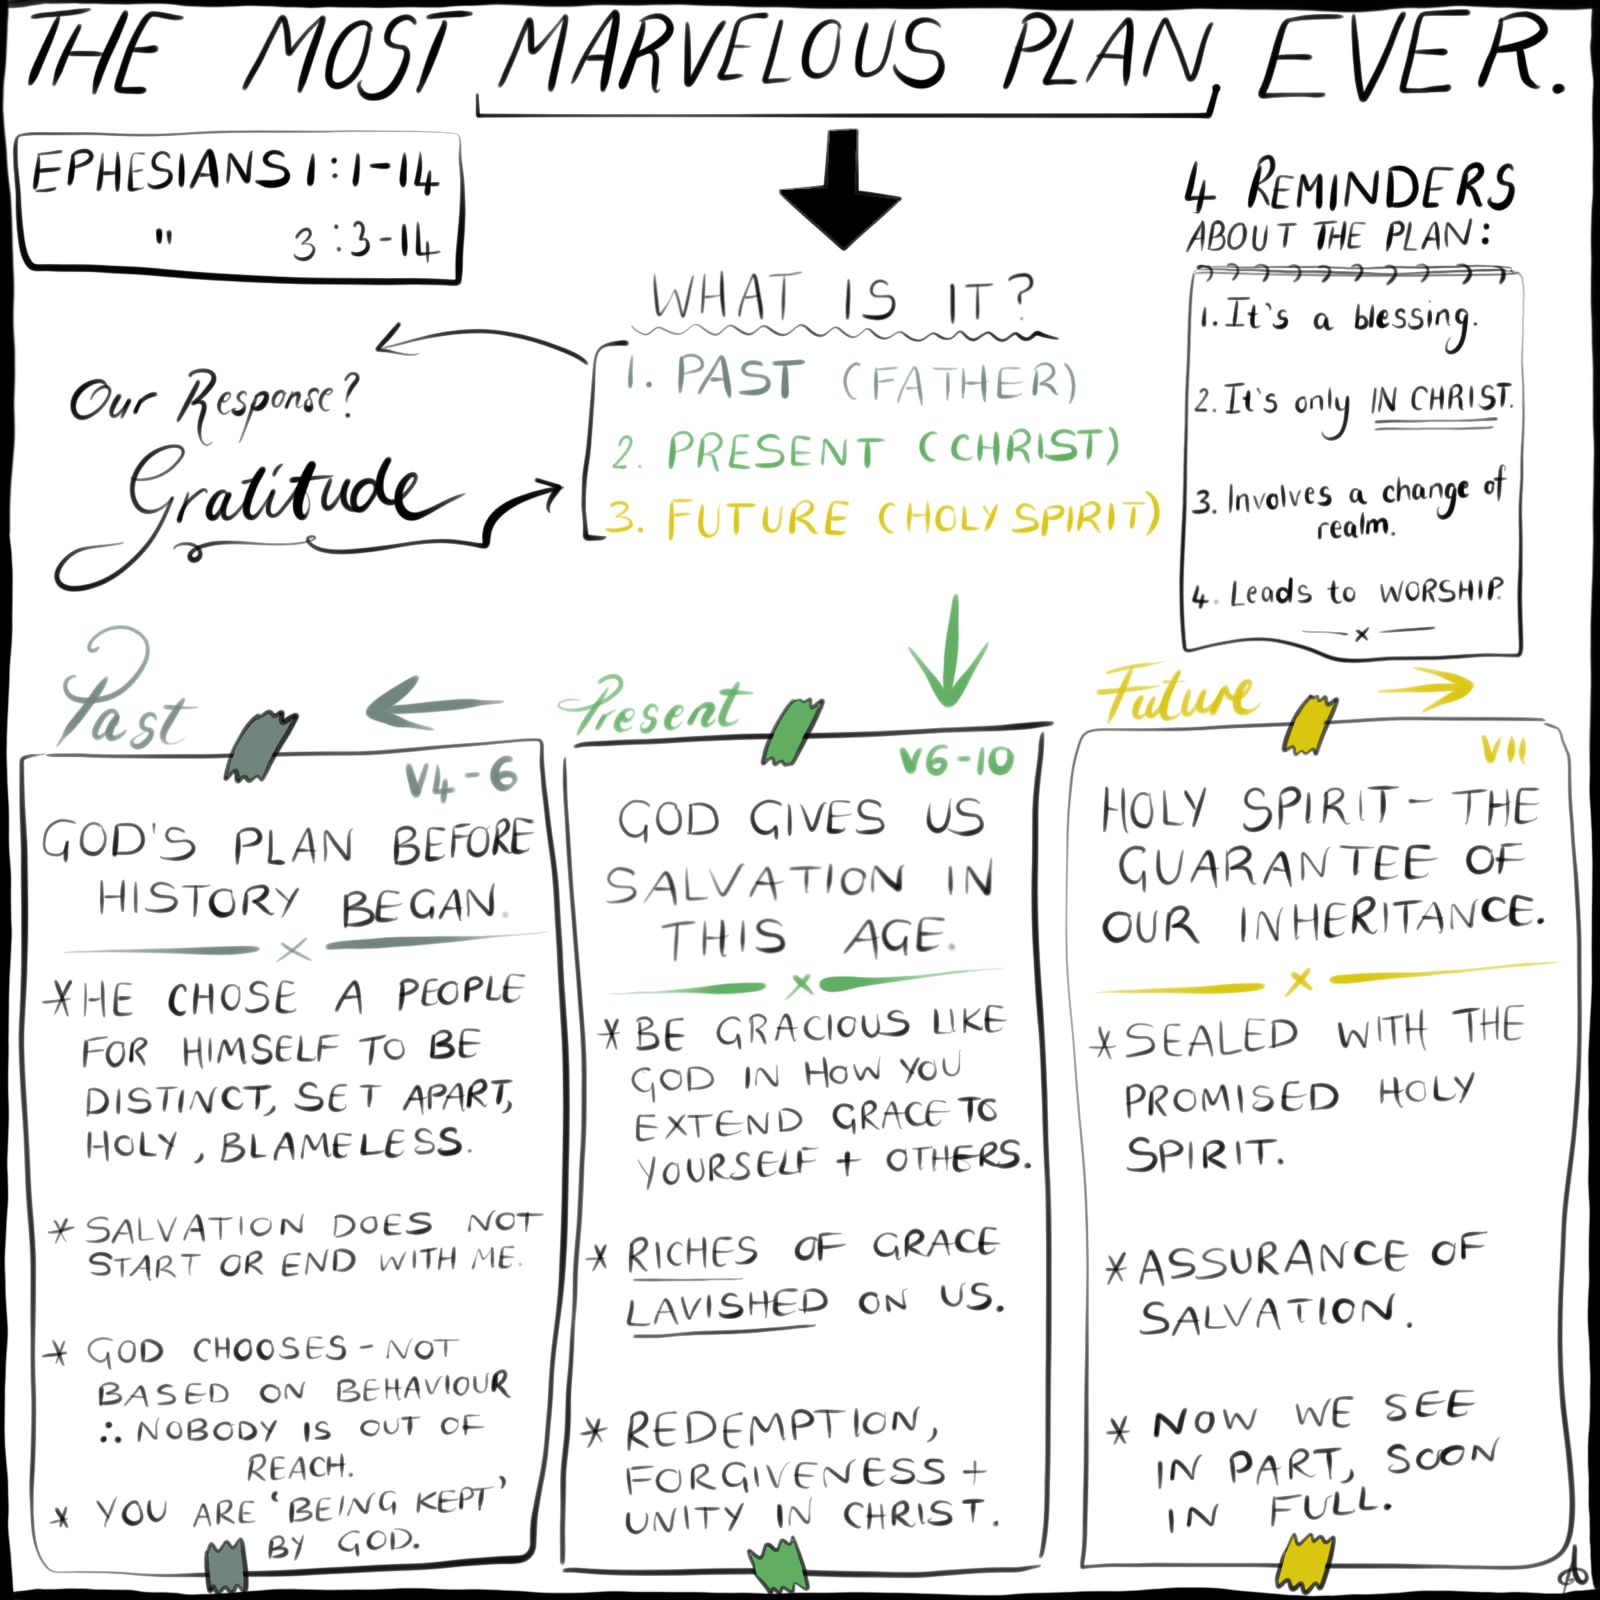 THE MOST MARVELOUS PLAN, EVER.
EPHESIANS 1:1-14
" 3:3-14
WHAT IS IT?
1. PAST (FATHER)
2. PRESENT (CHRIST)
3. FUTURE (HOLY SPIRIT)
Our Response?
Gratitude
4 REMINDERS
ABOUT THE PLAN:
1. It's a blessing.
2. It's only IN CHRIST.
3. Involves a change of
realm.
4. Leads to WORSHIP.
Past
V4-6
GOD'S PLAN BEFORE
HISTORY BEGAN.
* HE CHOSE A PEOPLE
FOR HIMSELF TO BE
DISTINCT, SET APART,
HOLY, BLAMELESS.
* SALVATION DOES NOT
START OR END WITH ME.
* GOD CHOOSES - NOT
BASED ON BEHAVIOUR
∴ NOBODY IS OUT OF
REACH.
* YOU ARE 'BEING KEPT'
BY GOD.
Present
V6-10
GOD GIVES US
SALVATION IN
THIS AGE.
* BE GRACIOUS LIKE
GOD IN HOW YOU
EXTEND GRACE TO
YOURSELF + OTHERS.
* RICHES OF GRACE
LAVISHED ON US.
* REDEMPTION,
FORGIVENESS +
UNITY IN CHRIST.
Future
V11
HOLY SPIRIT - THE
GUARANTEE OF
OUR INHERITANCE.
* SEALED WITH THE
PROMISED HOLY
SPIRIT.
* ASSURANCE OF
SALVATION.
* NOW WE SEE
IN PART, SOON
IN FULL.